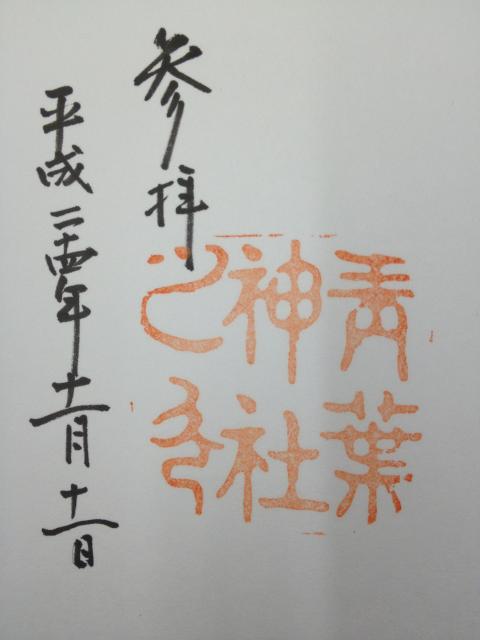 参拝
青葉
神社
之印
平成二十四年十一月十一日